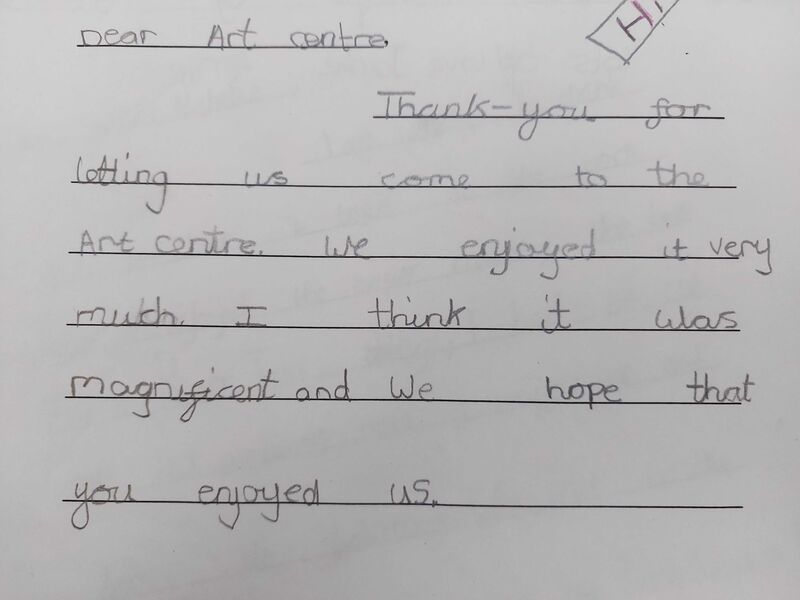 Dear Art centre,
Thank-you for
letting us come to the
Art centre. We enjoyed it very
much. I think it was
magnificent and We hope that
you enjoyed us.